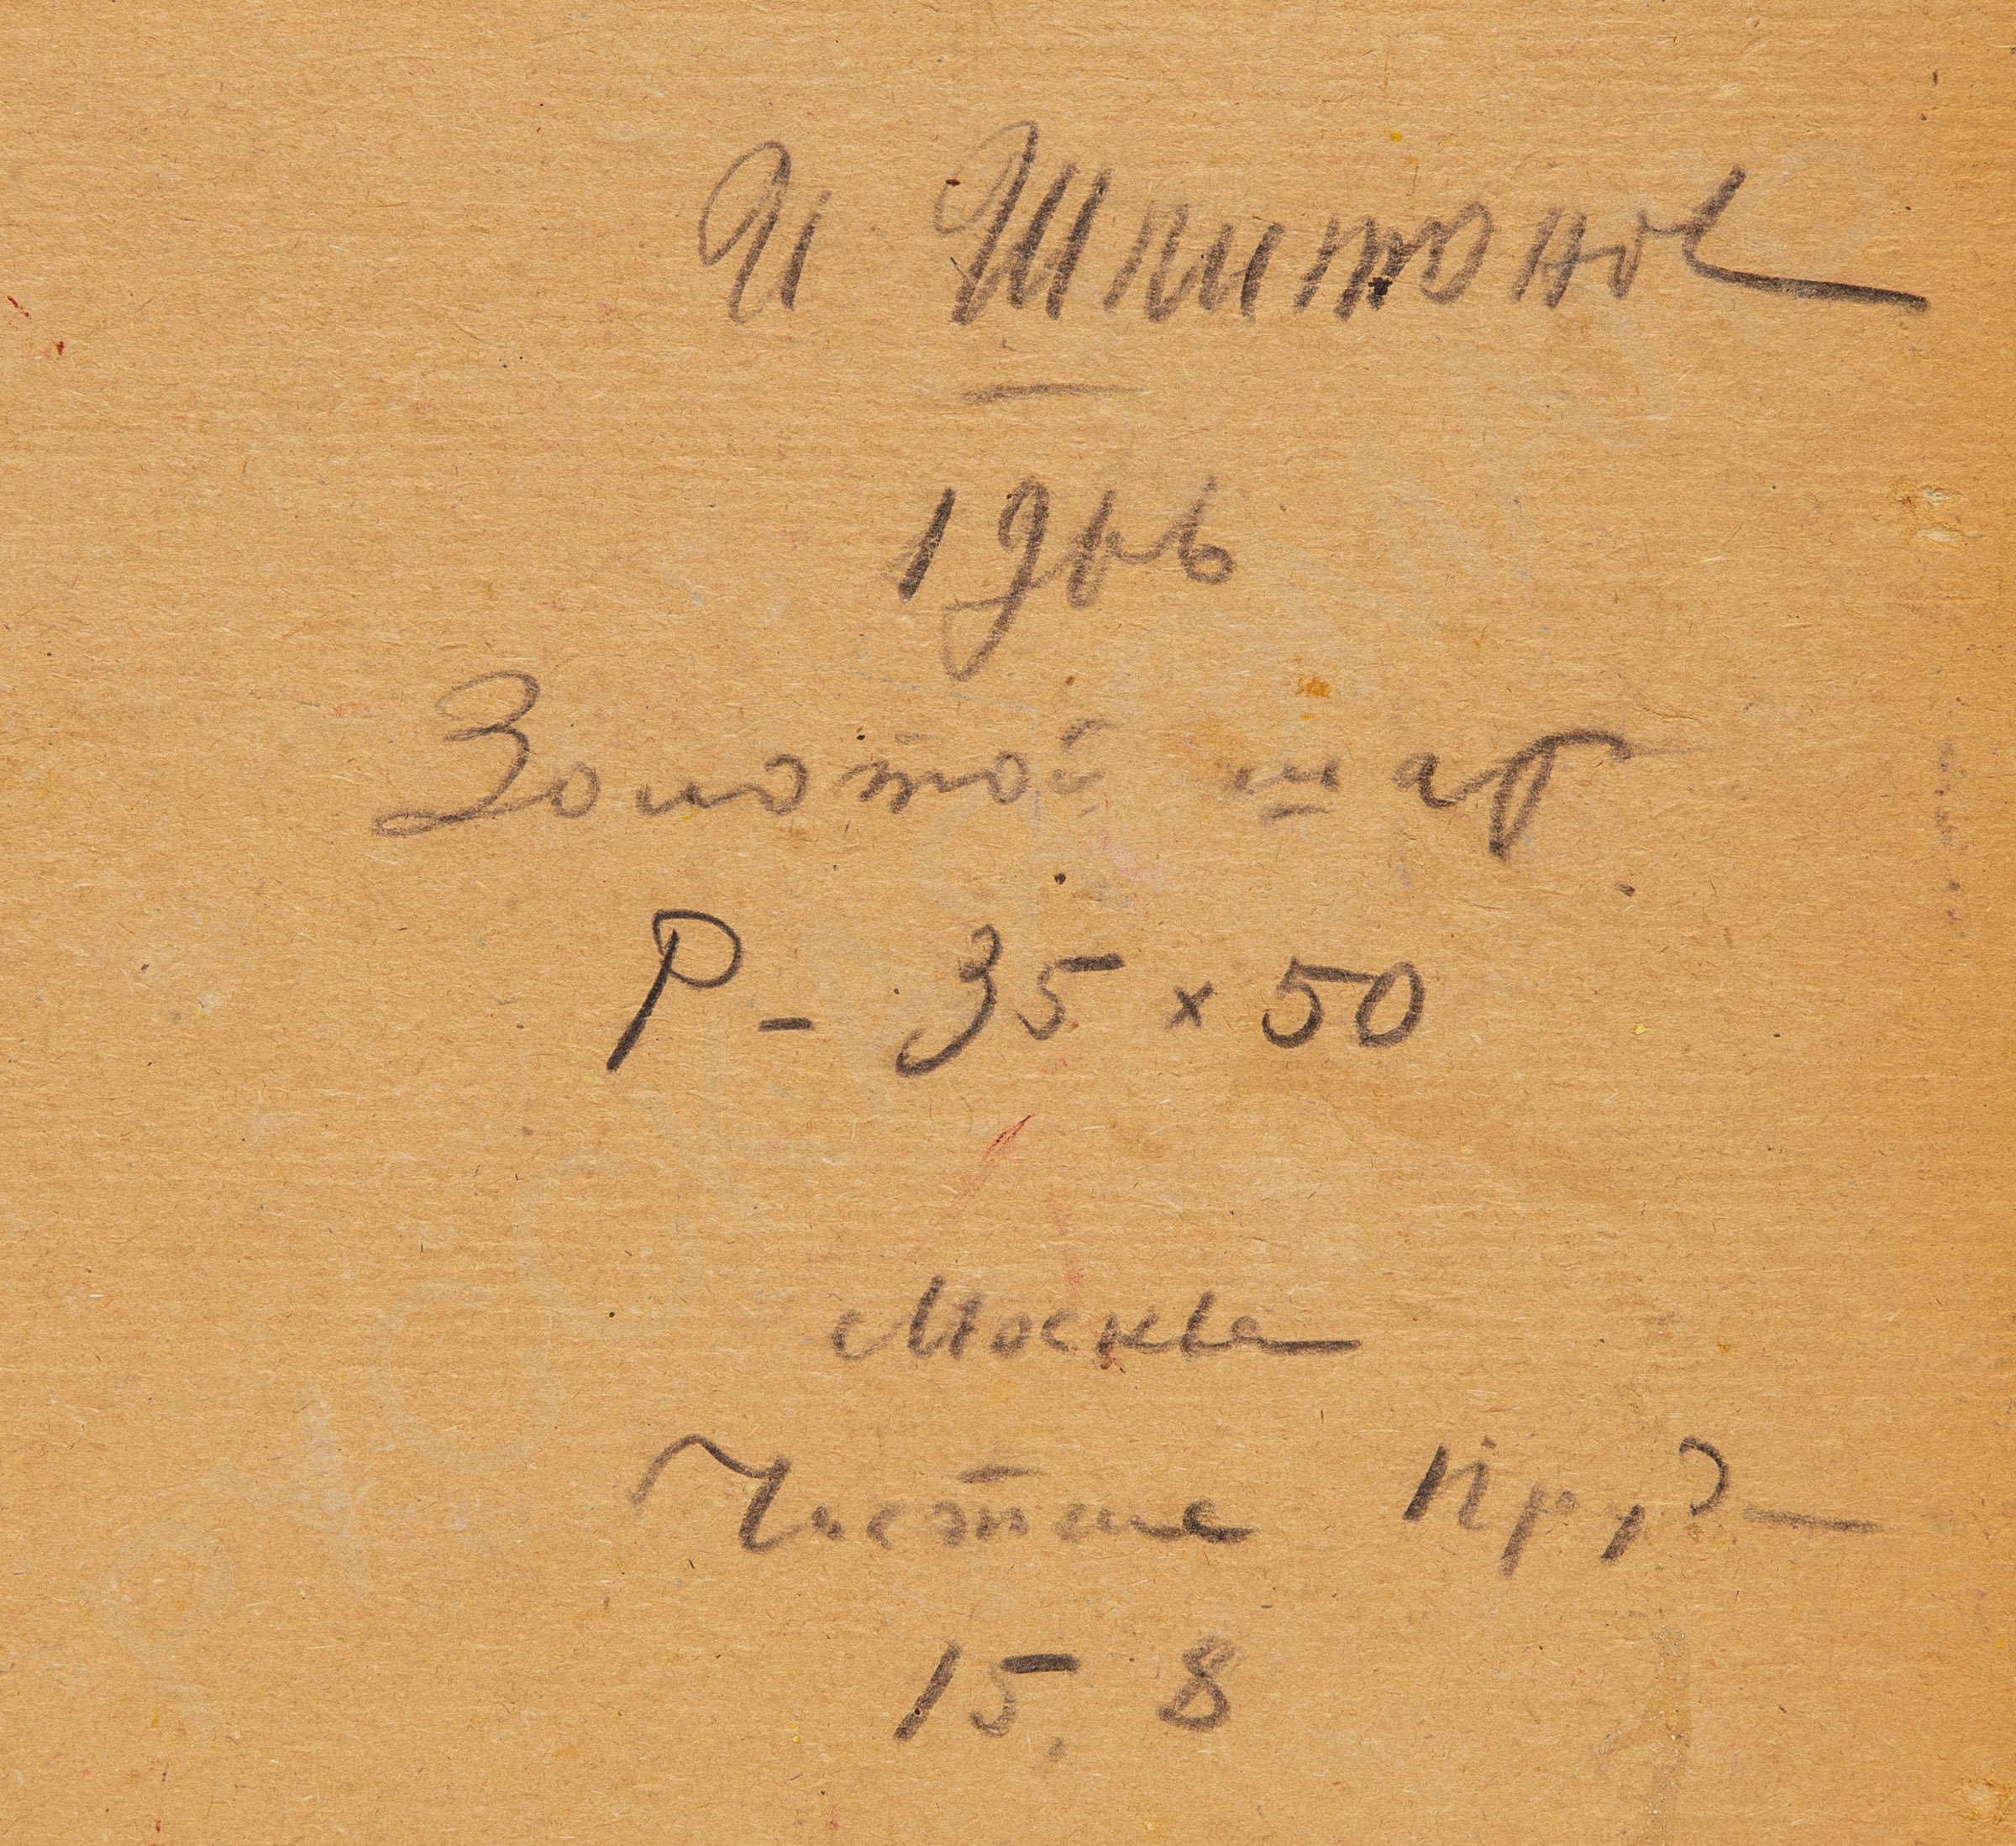 И Шпитонов
1966
Золотой шар
Р - 35 × 50
Москва
Чистые Пруд
15, 8